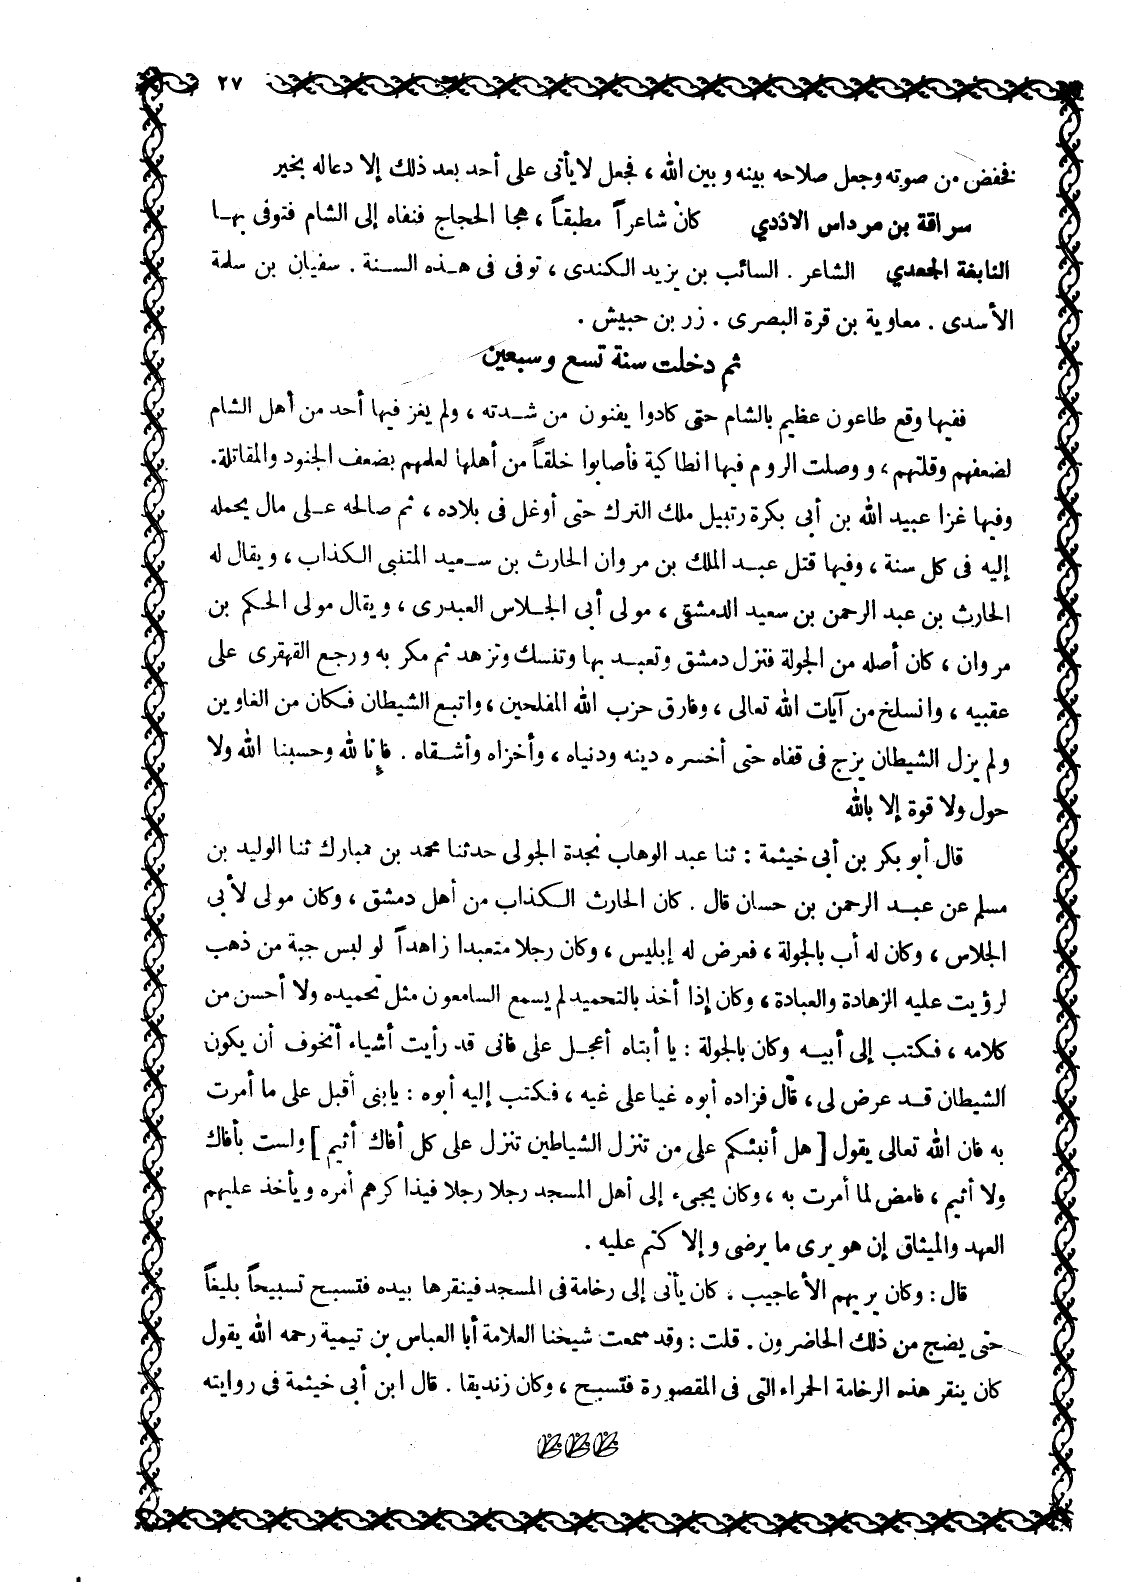 ٢٧
فخفض من صوته وجعل صلاحه بينه وبين الله ، فجعل لا يأتى على أحد بعد ذلك إلا دعا له بخير
سراقة بن مرداس الازدي كان شاعراً مطبقاً ، هجا الحجاج فنفاه إلى الشام فتوفى بهـا
النابغة الجعدي الشاعر . السائب بن يزيد الكندى ، توفى فى هـذه السـنة . سفيان بن سلمة
الأسدى . معاوية بن قرة البصرى . زر بن حبيش .
ثم دخلت سنة تسع وسبعين
ففيها وقع طاعون عظيم بالشام حتى كادوا يفنون من شـدته ، ولم يغز فيها أحد من أهل الشام
لضعفهم وقلتهم ، ووصلت الروم فيها انطاكية فأصابوا خلقاً من أهلها لعلمهم بضعف الجنود والمقاتلة.
وفيها غزا عبيد الله بن أبى بكرة رتبيل ملك الترك حتى أوغل فى بلاده ، ثم صالحه عـلى مال يحمله
إليه فى كل سنة ، وفيها قتل عبـد الملك بن مروان الحارث بن سـعيد المتنبى الكذاب ، ويقال له
الحارث بن عبد الرحمن بن سعيد الدمشقى ، مولى أبى الجـلاس العبدرى ، ويقال مولى الحكم بن
مروان ، كان أصله من الجولة فنزل دمشق وتعبـد بها وتنسك وتزهد ثم مكر به ورجع القهقرى على
عقبيه ، وانسلخ من آيات الله تعالى ، وفارق حزب الله المفلحين ، واتبع الشيطان فكان من الغاوين
ولم يزل الشيطان يزج فى قفاه حتى أخسره دينه ودنياه ، وأخزاه وأشـقاه . فإنا لله وحسبنا الله ولا
حول ولا قوة إلا بالله
قال أبو بكر بن أبى خيثمة : ثنا عبد الوهاب نجدة الجولى حدثنا محمد بن مبارك ثنا الوليد بن
مسلم عن عبـد الرحمن بن حسان قال . كان الحارث الكذاب من أهل دمشق ، وكان مولى لأبى
الجلاس ، وكان له أب بالجولة ، فعرض له إبليس ، وكان رجلا متعبدا زاهداً لو لبس جبة من ذهب
لرؤيت عليه الزهادة والعبادة ، وكان إذا أخذ بالتحميد لم يسمع السامعون مثل تحميده ولا أحسن من
كلامه ، فكتب إلى أبيـه وكان بالجولة : يا أبتاه أعجـل على فانى قد رأيت أشياء أتخوف أن يكون
الشيطان قـد عرض لى ، قال فزاده أبوه غيا على غيه ، فكتب إليه أبوه : يابنى أقبل على ما أمرت
به فان الله تعالى يقول [ هل أنبئكم على من تنزل الشياطين تنزل على كل أفاك أثيم ] ولست بأفاك
ولا أثيم ، فامض لما أمرت به ، وكان يجىء إلى أهل المسجد رجلا رجلا فيذا كرهم أمره ويأخذ عليهم
العهد والميثاق إن هو يرى ما يرضى وإلا كتم عليه .
قال : وكان يريهم الأعاجيب . كان يأتى إلى رخامة فى المسجد فينقرها بيده فتسبح تسبيحاً بليغاً
حتى يضج من ذلك الحاضرون . قلت : وقد سمعت شيخنا العلامة أبا العباس بن تيمية رحمه الله يقول
كان ينقر هذه الرخامة الحمراء التى فى المقصورة فتسبح ، وكان زنديقا . قال ابن أبى خيثمة فى روايته